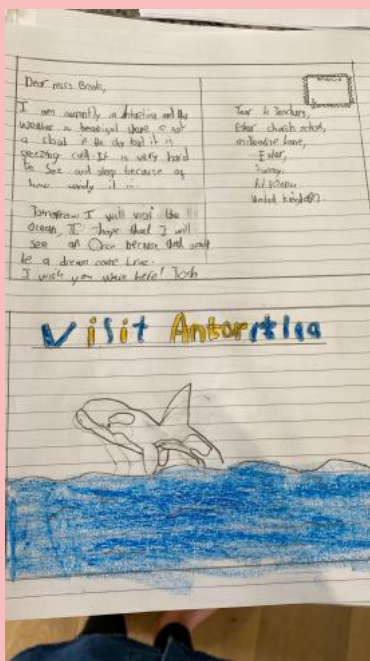 Dear miss Brook,
I am currently in Antartica and the
weather is beautiful there is not
a cloud in the sky but it is
freezing cold. It is very hard
to see and sleep because of
how windy it is
Tomorrow I will visit the
ocean, I hope that I will
see an Orca because that would
be a dream come true.
I wish you were here! Josh
Year 4 Teachers,
Esher church school,
milbourne lane,
Esher,
Surrey,
United Kingdom.
Visit Antarctica